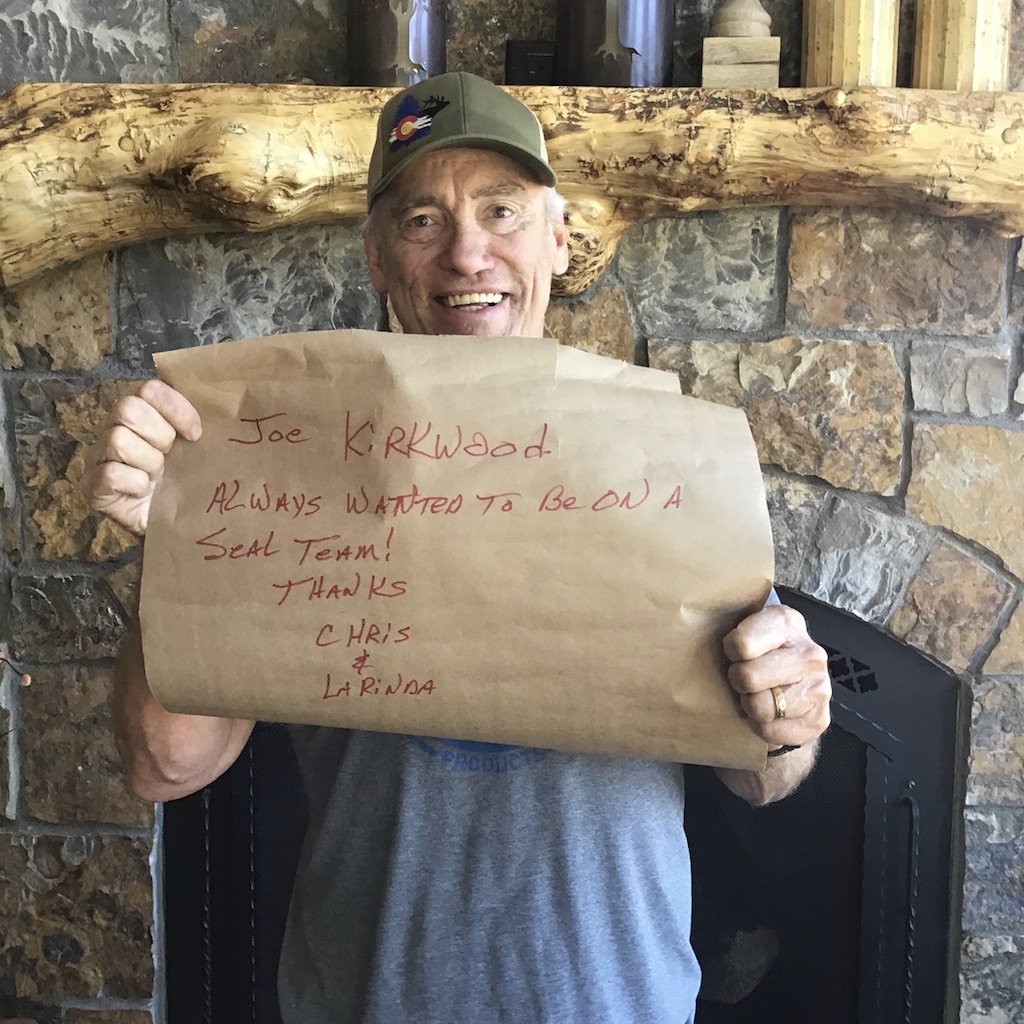 Joe KiRKWood
ALWAYS WANTED To Be ON A
SeAL TeAM!
THANKS
CHRiS
&
LARiNDA
PRODUCTS